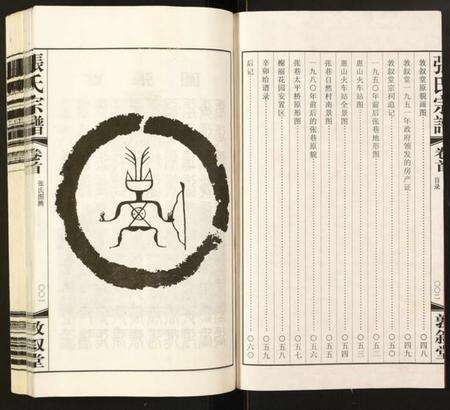 張氏宗譜
卷首
目录
〇〇二
敦叙堂
敦叙堂原貌画图 〇四八
敦叙堂一九五一年政府颁发的房产证 〇四九
敦叙堂宗祠追记 〇五〇
一九五〇年前后张巷地形图 〇五二
惠山火车站图 〇五三
惠山火车站全景图 〇五四
张巷自然村南景图 〇五五
一九八〇年前后的张巷原貌 〇五六
张巷太平桥原形图 〇五七
槐丽花园安置区 〇五八
辛卯给谱录 〇五九
后记 〇六〇
張氏宗譜
卷首
张氏图腾
〇〇一
敦叙堂